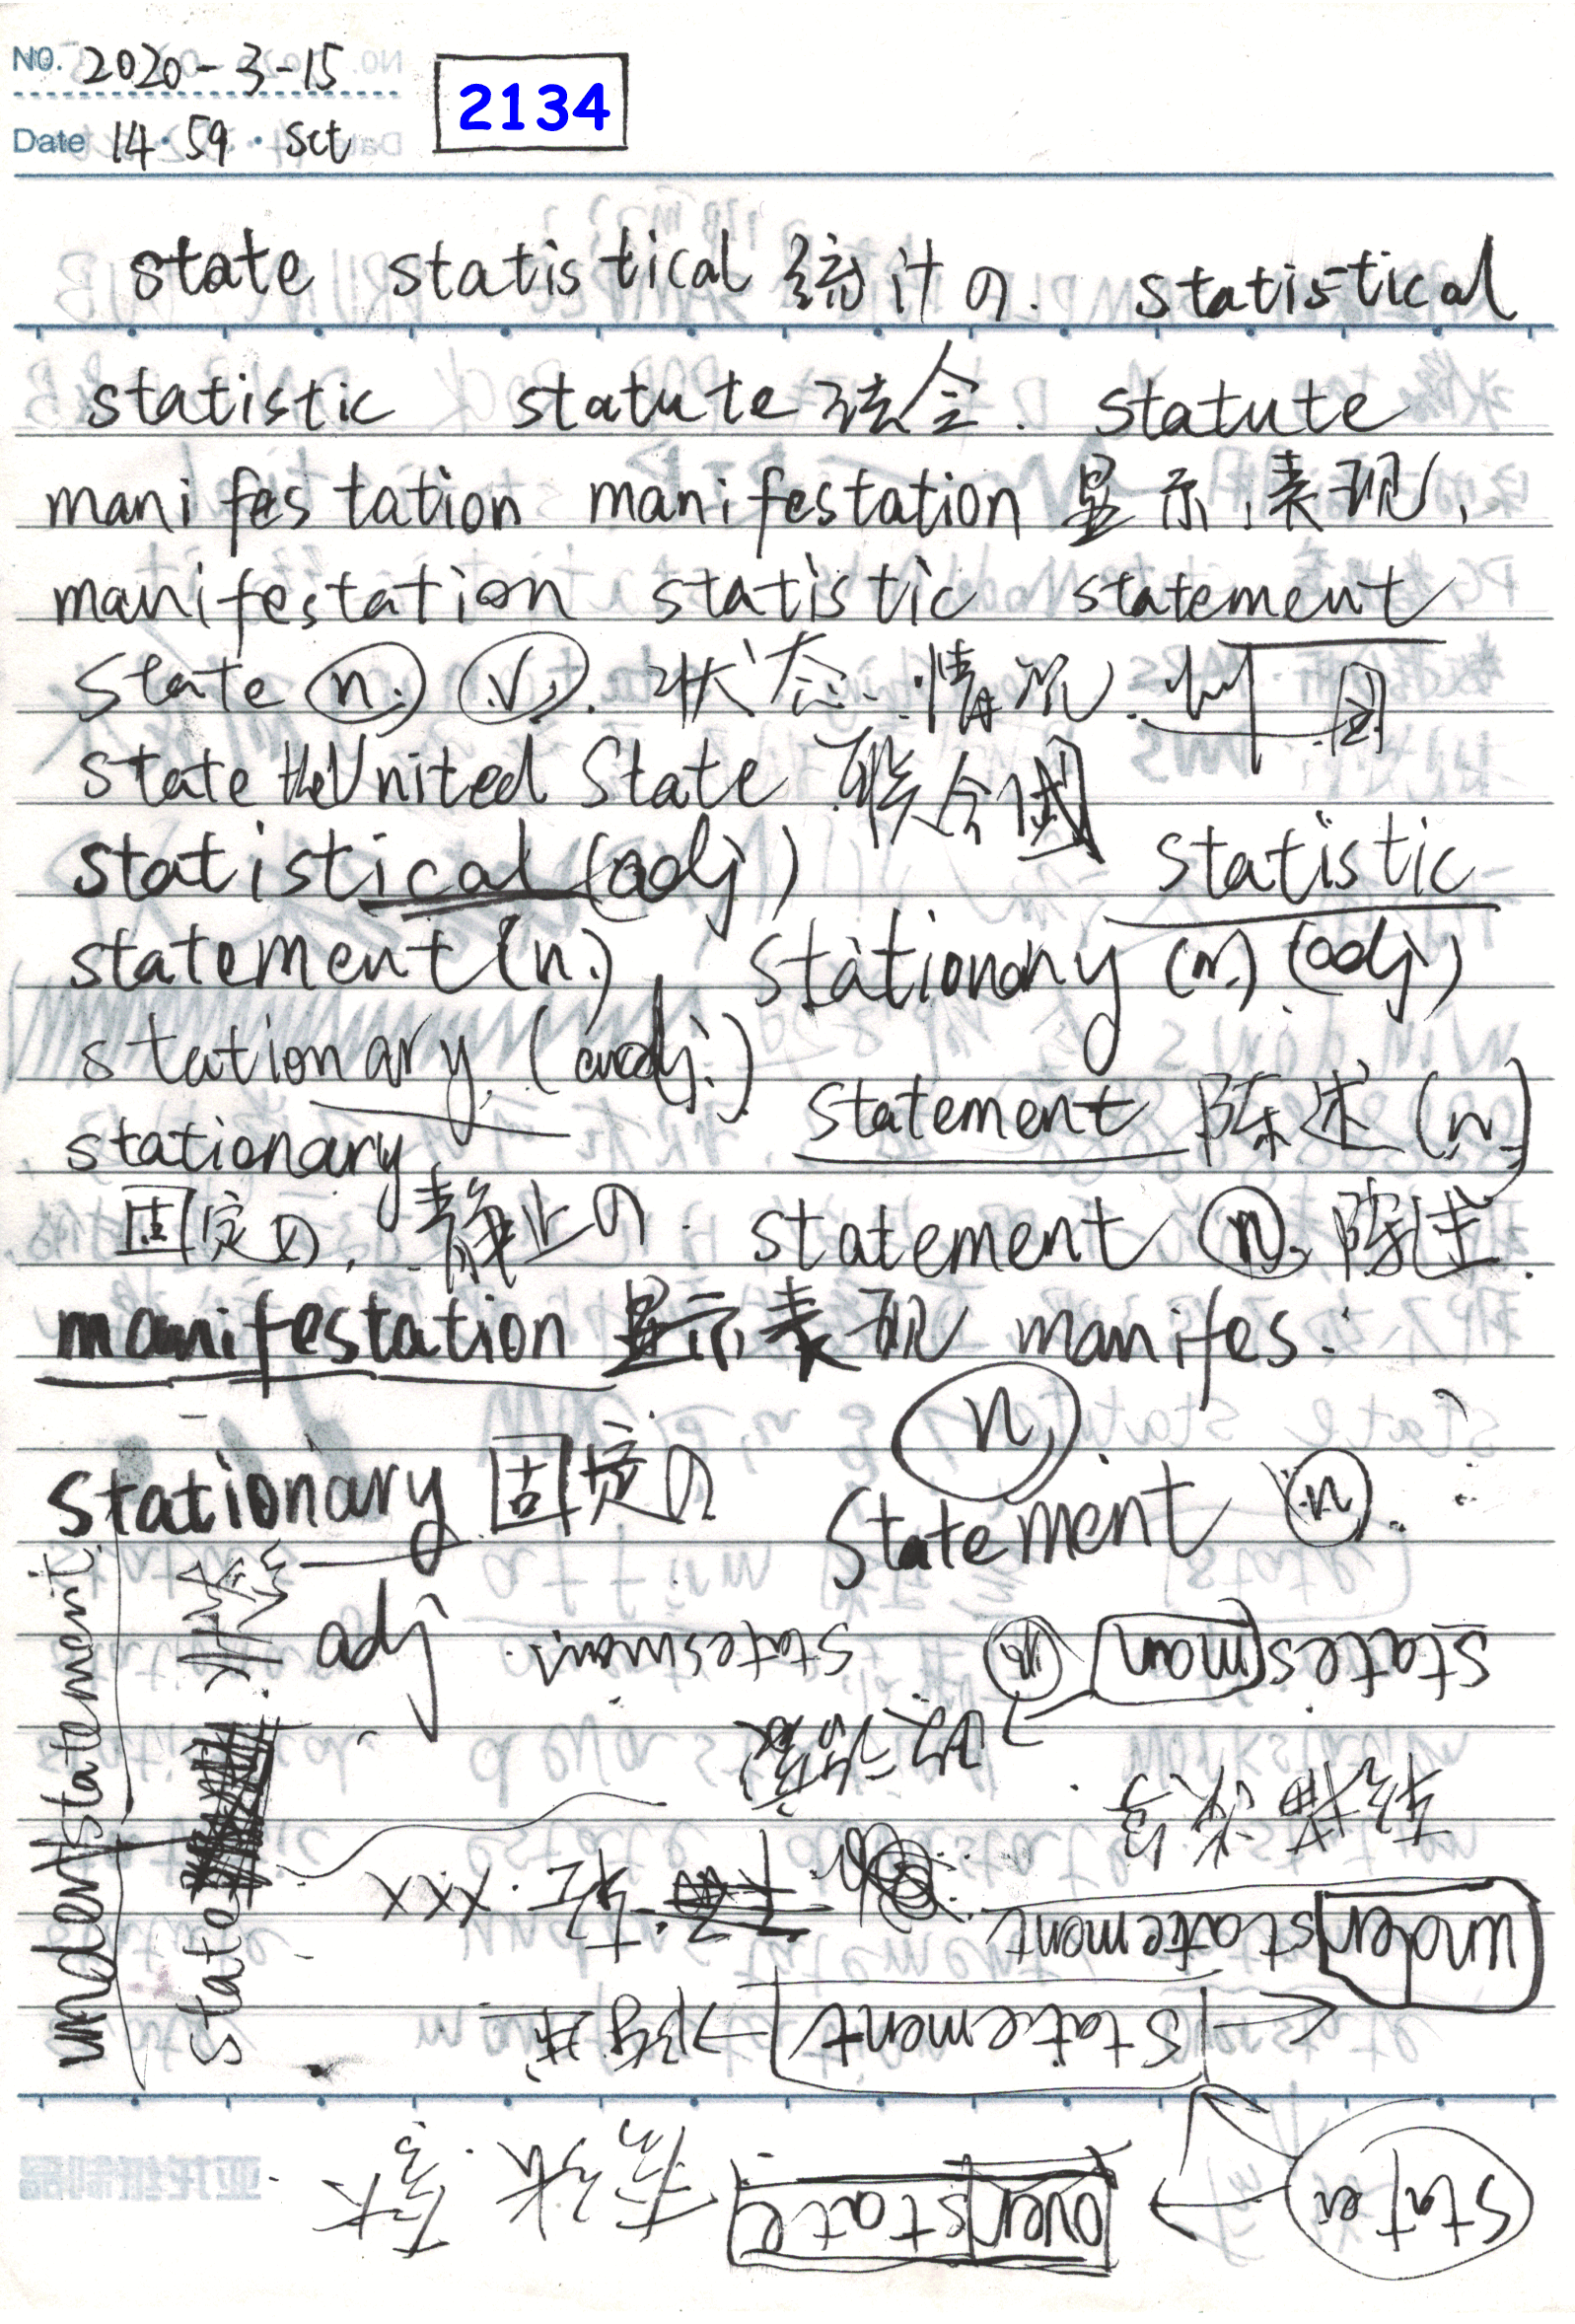 NO. 2020-3-15
2134
Date 14·59· Sct
state statistical 统计の. statistical
statistic statute 法令. statute
manifestation manifestation 显示,表现,
manifestation statistic statement
state n. v. 状态、情况. 州 国
state the United State 联合国
statistical (adj) statistic
statement (n.), stationary (n.) (adj.)
stationary. (adj.)
statement 陈述 (n.)
stationary
固定の, 静止の. statement n. 陈述.
manifestation 显示,表现 manifes.
n.
stationary 固定の statement n.
adj
understatement.
state 状态
statesman n. statesman.
政治家
轻描淡写.
understatement 轻. xxx
statement → 陈述
state overstate 夸张. 夸大.
亚龙纸制品